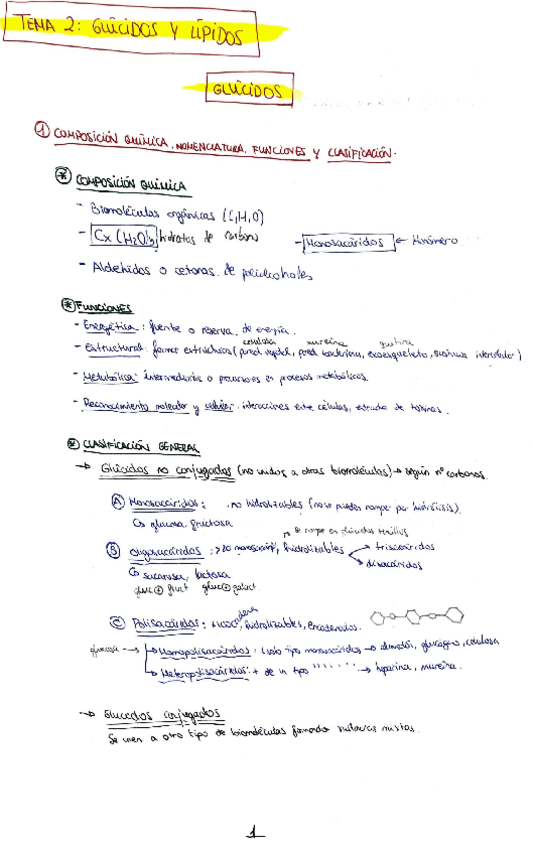 TEMA 2: GLÚCIDOS Y LÍPIDOS
GLÚCIDOS
① COMPOSICIÓN QUÍMICA, NOMENCLATURA, FUNCIONES Y CLASIFICACIÓN.
* COMPOSICIÓN QUÍMICA
- Biomoléculas orgánicas (C,H,O)
- Cx(H2O)y hidratos de carbono - Monosacáridos ← Monómero
- Aldehídos o cetonas de polialcoholes
* FUNCIONES
- Energética: fuente o reserva de energía.
celulosa mureína quitina
- Estructural: forman estructuras (pared vegetal, pared bacteriana, exoesqueleto, sustancia intercelular)
- Metabólica: intermediarios o precursores en procesos metabólicos.
- Reconocimiento molecular y celular: interacciones entre células, entrada de toxinas.
* CLASIFICACIÓN GENERAL
→ Glúcidos no conjugados (no unidos a otras biomoléculas) → según nº carbonos.
Ⓐ Monosacáridos: no hidrolizables (no se pueden romper por hidrólisis).
↳ glucosa, fructosa
se rompe en glúcidos
Ⓑ Oligosacáridos: hidrolizables → trisacáridos
→ disacáridos
↳ sacarosa, lactosa
gluc + fruct gluc + galact
Ⓒ Polisacáridos: hidrolizables,
→ Homopolisacáridos: 1 solo tipo monosacáridos → almidón, glucógeno, celulosa
→ Heteropolisacáridos: + de un tipo " " " → heparina, mureína.
→ Glúcidos conjugados
Se unen a otro tipo de biomoléculas formando moléculas mixtas.
1